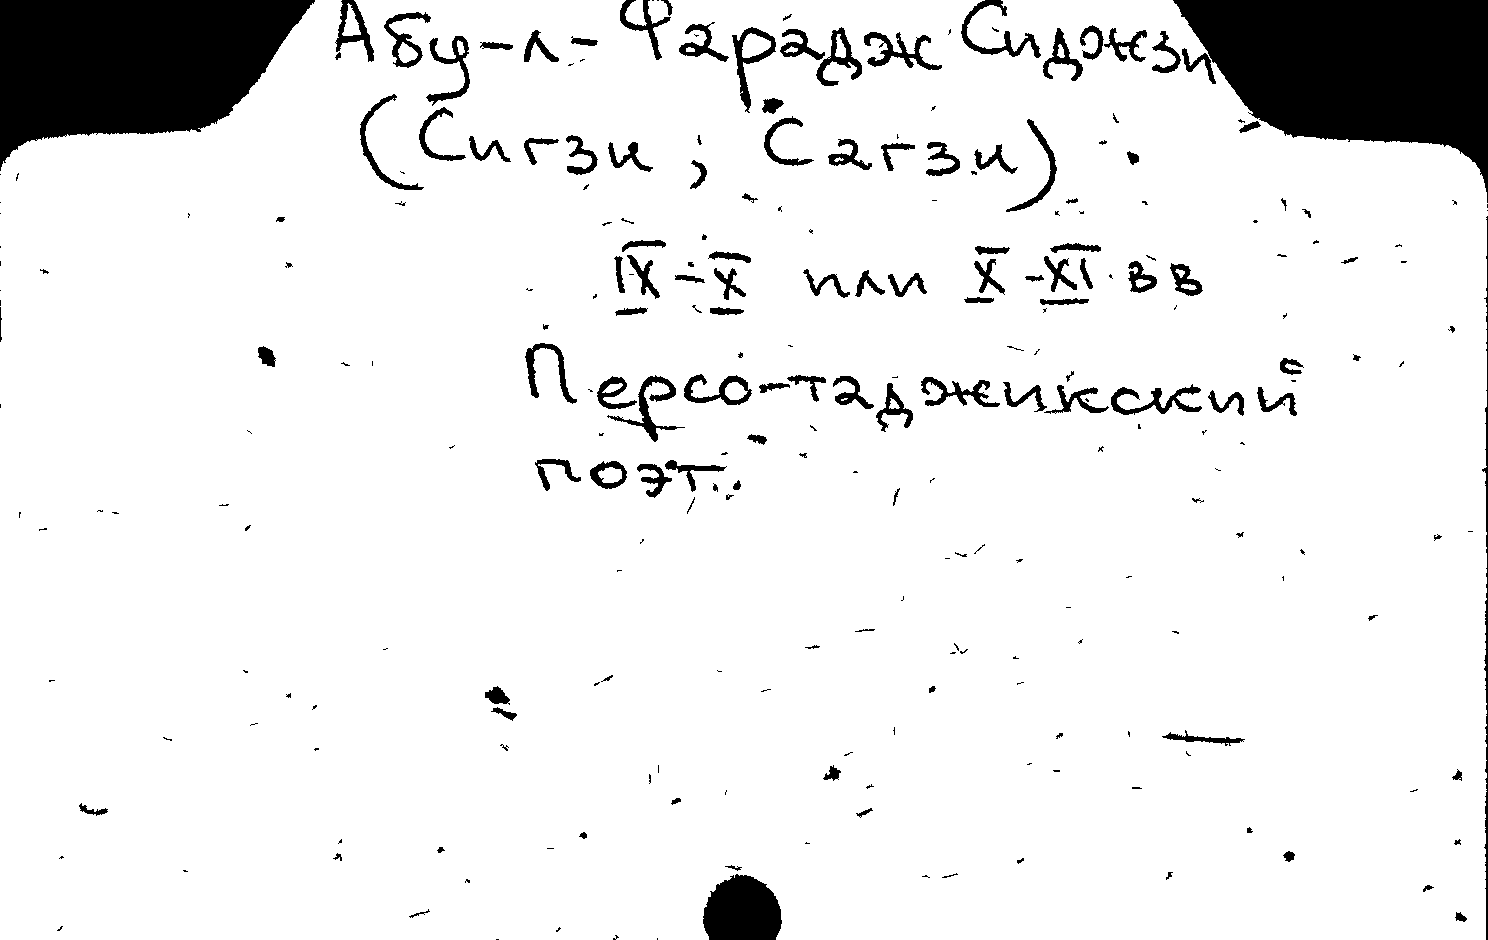 Абу-л-Фарадж Сиджзи
(Сигзи; Сагзи).
IX-X или X-XI вв
Персо-таджикский
поэт.